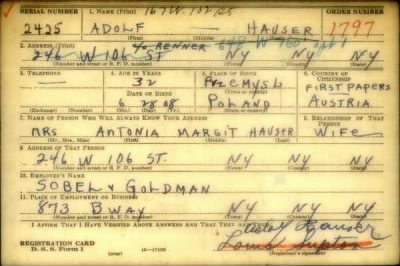 SERIAL NUMBER 1. NAME (Print) 167 W. ORDER NUMBER
2425 ADOLF — HAUSER 1797
(First) (Middle) (Last)
2. ADDRESS (Print) % RENNER
246 W 106 ST NY NY
(Number and street or R. F. D. number) (Town) (County) (State)
3. TELEPHONE 4. AGE IN YEARS 5. PLACE OF BIRTH 6. COUNTRY OF CITIZENSHIP
— 32 PRZEMYSL FIRST PAPERS
DATE OF BIRTH (Town or county)
6 28 08 POLAND AUSTRIA
(Exchange) (Number) (Mo.) (Day) (Yr.) (State or country)
7. NAME OF PERSON WHO WILL ALWAYS KNOW YOUR ADDRESS 8. RELATIONSHIP OF THAT PERSON
MRS ANTONIA MARGIT HAUSER WIFE
(Mr., Mrs., Miss) (First) (Middle) (Last)
9. ADDRESS OF THAT PERSON
246 W 106 ST. NY NY
(Number and street or R. F. D. number) (Town) (County) (State)
10. EMPLOYER'S NAME
SOBEL & GOLDMAN
11. PLACE OF EMPLOYMENT OR BUSINESS
873 BWAY NY NY
(Number and street or R. F. D. number) (Town) (County) (State)
I AFFIRM THAT I HAVE VERIFIED ABOVE ANSWERS AND THAT THEY ARE TRUE.
Adolf Hauser
REGISTRATION CARD
D. S. S. Form 1 (Registrant's signature)